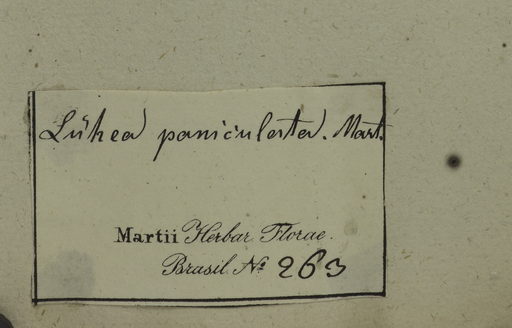 Lühea paniculata. Mart.
Martii Herbar. Florae.
Brasil. No 263